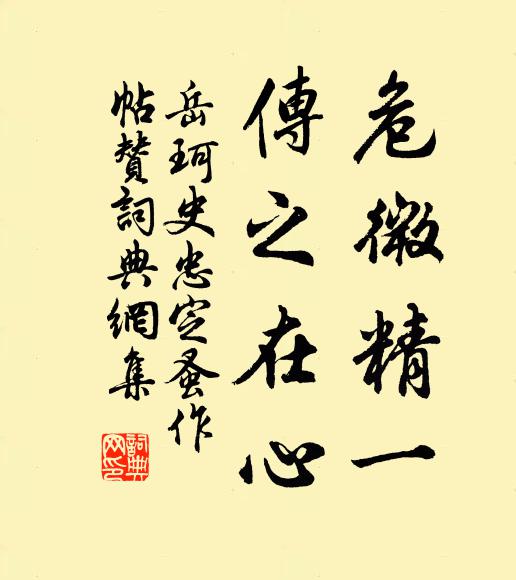 危微精一
傳之在心
岳珂史忠定蚤作
帖贊詞典網集
詞典網印